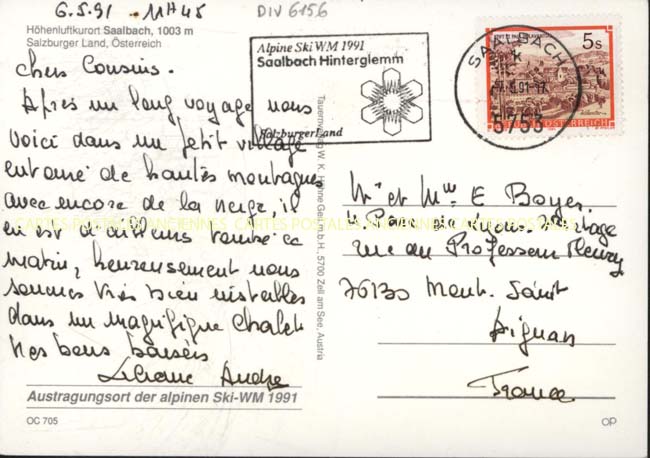 6.5.91 - 11H45
DIV 6156
Höhenluftkurort Saalbach, 1003 m
Salzburger Land, Österreich
Chers Cousins.
Après un long voyage nous
voici dans un petit village
entouré de hautes montagnes
avec encore de la neige il
en est d'ailleurs tombé ce
matin, heureusement nous
sommes très bien installés
dans un magnifique chalet
Nos bons baisers
Liliane André
Austragungsort der alpinen Ski-WM 1991
OC 705
Alpine Ski WM 1991
Saalbach Hinterglemm
SalzburgerLand
SAALBACH
5753
5s
REPUBLIK ÖSTERREICH
W. K. Höhne Ges.m.b.H., 5700 Zell am See, Austria
Mr et Mme E Boyer
rue du Professeur Fleury
76130 Mont. Saint
Aignan
France
OP
CARTES POSTALES ANCIENNES CARTES POSTALES ANCIENNES CARTES POSTALES ANCIENNES